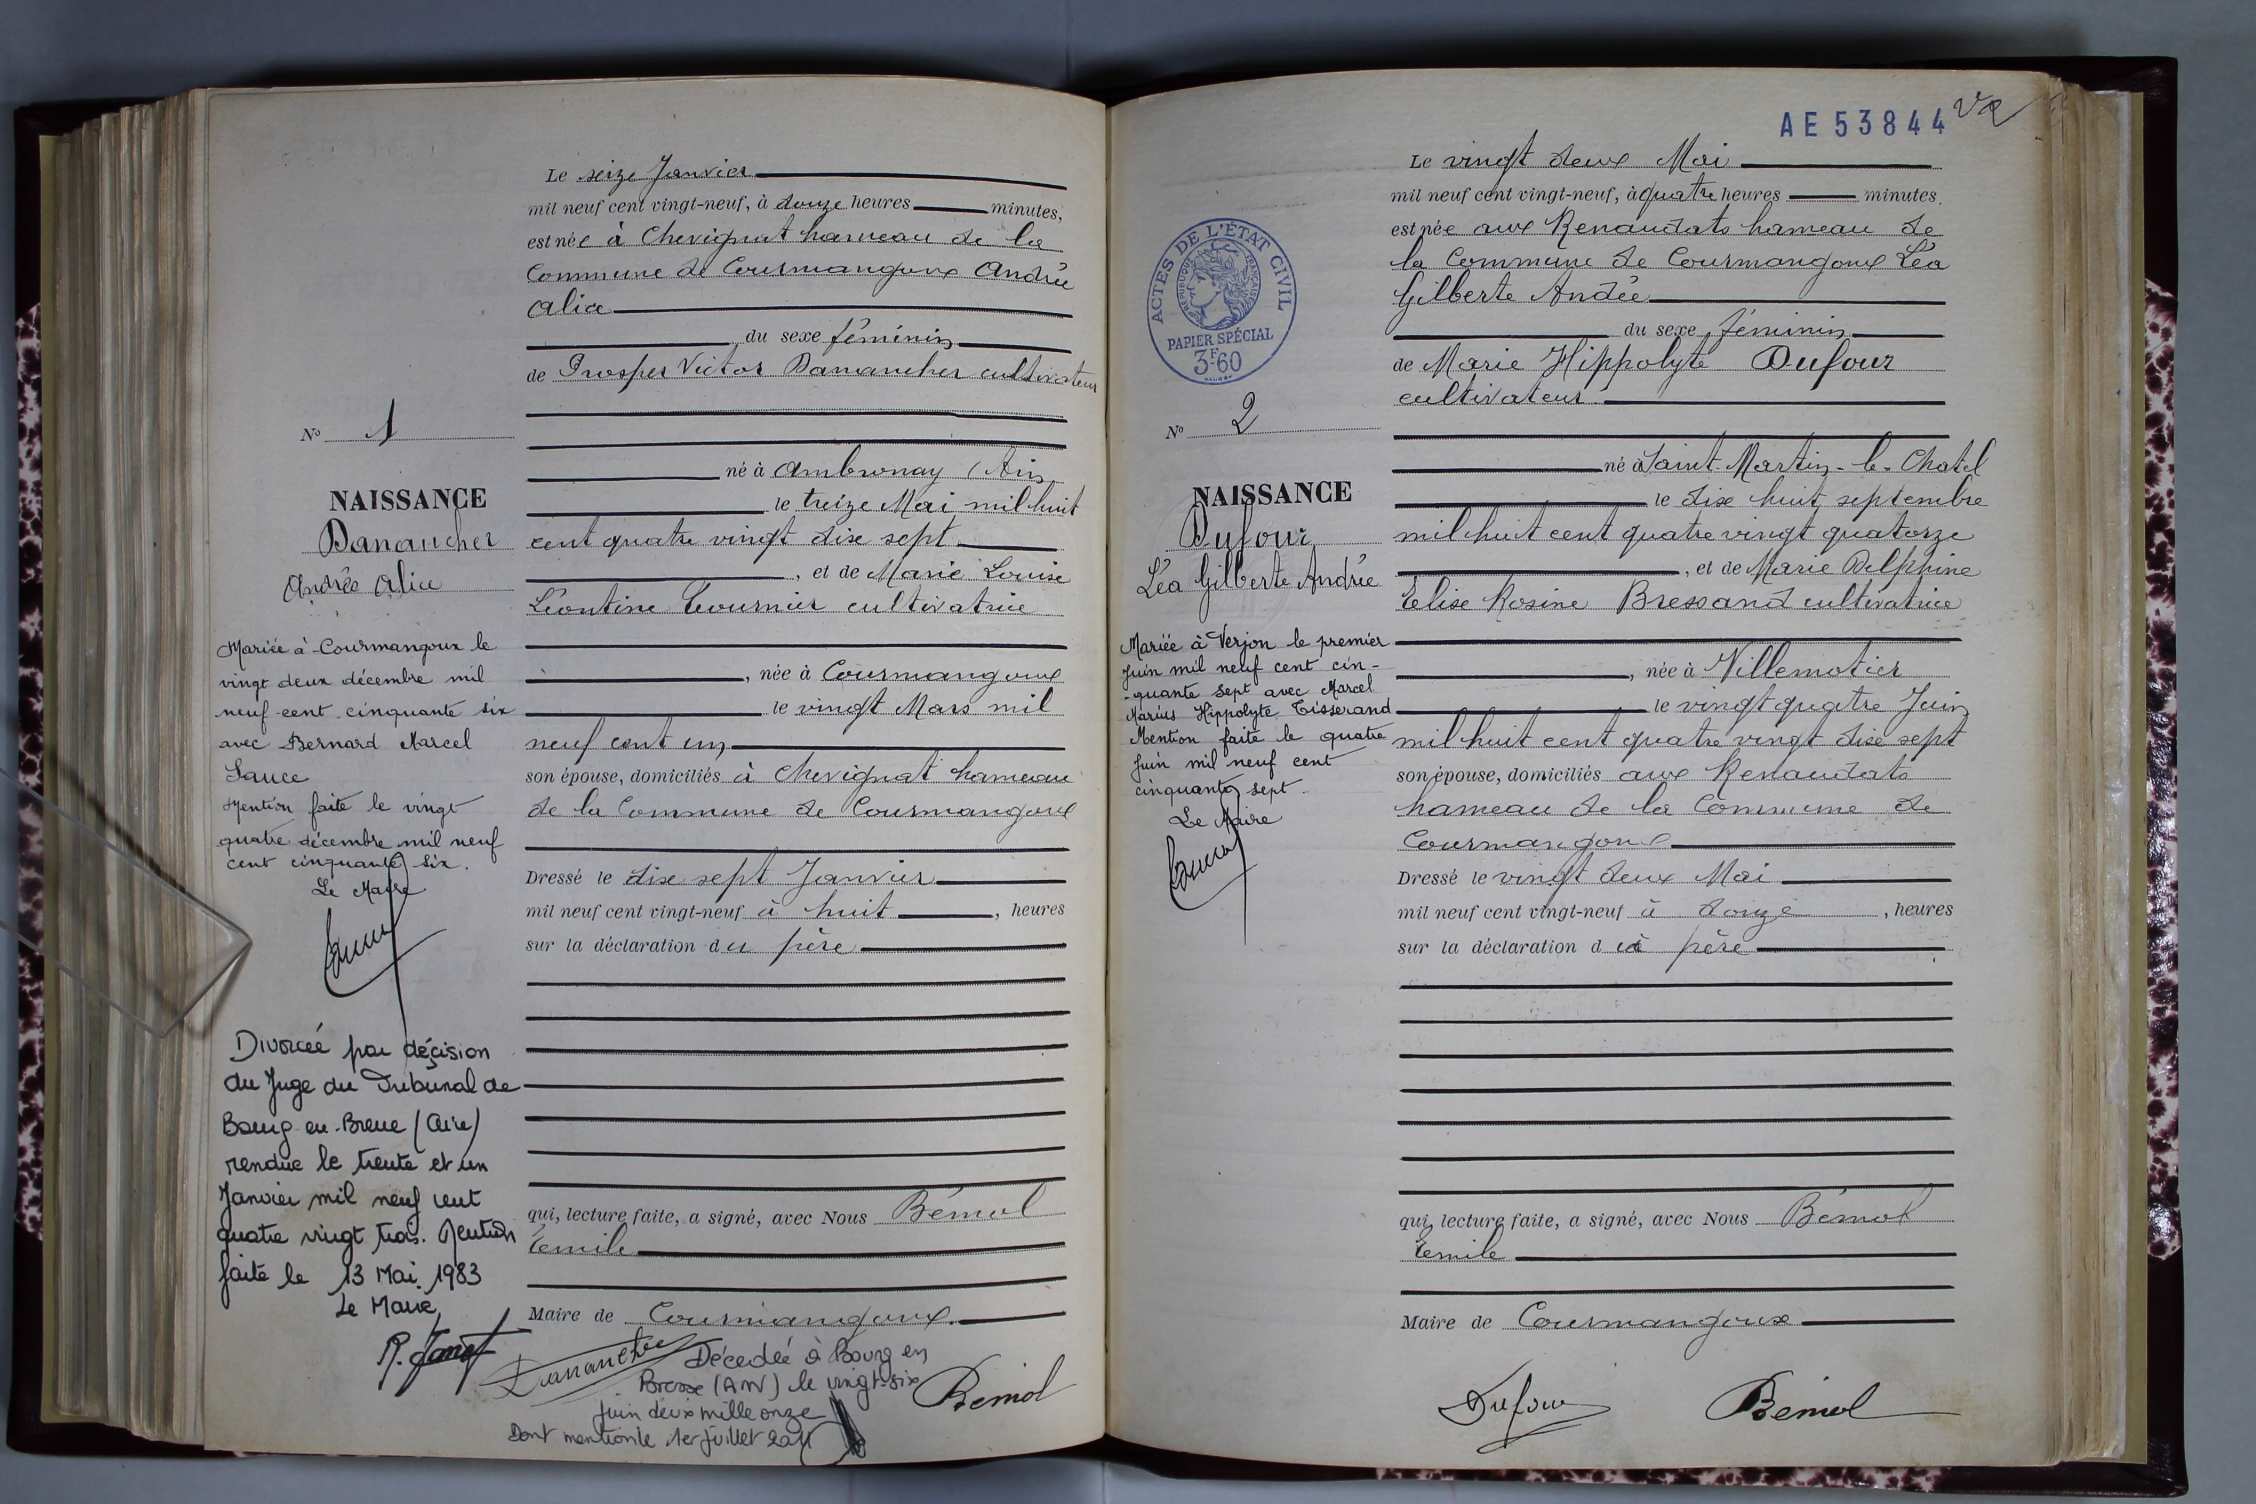 Le seize Janvier
mil neuf cent vingt-neuf, à douze heures minutes,
est née à Chevignat hameau de la
Commune de Courmangoux Andrée
Alice
du sexe féminin
de Prosper Victor Danancher cultivateur
N° 1
né à Ambronay (Ain
NAISSANCE
le treize Mai mil huit
Danancher
cent quatre vingt dix sept
Andrée Alice
, et de Marie Louise
Léontine Tournier cultivatrice
, née à Courmangoux
le vingt Mars mil
neuf cent un
son épouse, domiciliés à Chevignat hameau
de la Commune de Courmangoux
Dressé le dix sept Janvier
mil neuf cent vingt-neuf à huit , heures
sur la déclaration du père
qui, lecture faite, a signé, avec Nous Bémol
Emile
Maire de Courmangoux.
Mariée à Courmangoux le
vingt deux décembre mil
neuf cent cinquante six
avec Bernard Marcel
Sauce
Mention faite le vingt
quatre décembre mil neuf
cent cinquante six.
Le Maire
Divorcée par décision
du Juge du Tribunal de
Bourg-en-Bresse (Ain)
rendue le trente et un
Janvier mil neuf cent
quatre vingt trois. Mention
faite le 13 Mai 1983
Le Maire
R. Janet
Danancher
Décédée à Bourg en
Bresse (AIN) le vingt-six
juin deux mille onze
Dont mention le 1er juillet 2011
Bémol
AE53844
Le vingt deux Mai
mil neuf cent vingt-neuf, à quatre heures minutes.
est née aux Renaudats hameau de
la Commune de Courmangoux Léa
Gilberte Andée
du sexe féminin
de Marie Hippolyte Dufour
cultivateur
ACTES DE L'ÉTAT CIVIL
RÉPUBLIQUE FRANÇAISE
PAPIER SPÉCIAL
3F.60
N° 2
né à Saint-Martin-le-Chatel
NAISSANCE
le dix huit septembre
Dufour
mil huit cent quatre vingt quatorze
Léa Gilberte Andrée
, et de Marie Delphine
Elise Rosine Bressand cultivatrice
, née à Villemotier
le vingt quatre Juin
mil huit cent quatre vingt dix sept
son épouse, domiciliés aux Renaudats
hameau de la Commune de
Courmangoux
Dressé le vingt deux Mai
mil neuf cent vingt-neuf à douze , heures
sur la déclaration du père
qui, lecture faite, a signé, avec Nous Bémol
Emile
Maire de Courmangoux
Mariée à Verjon le premier
Juin mil neuf cent cin-
-quante sept avec Marcel
Marius Hippolyte Tisserand
Mention faite le quatre
Juin mil neuf cent
cinquante sept.
Le Maire
Dufour
Bémol